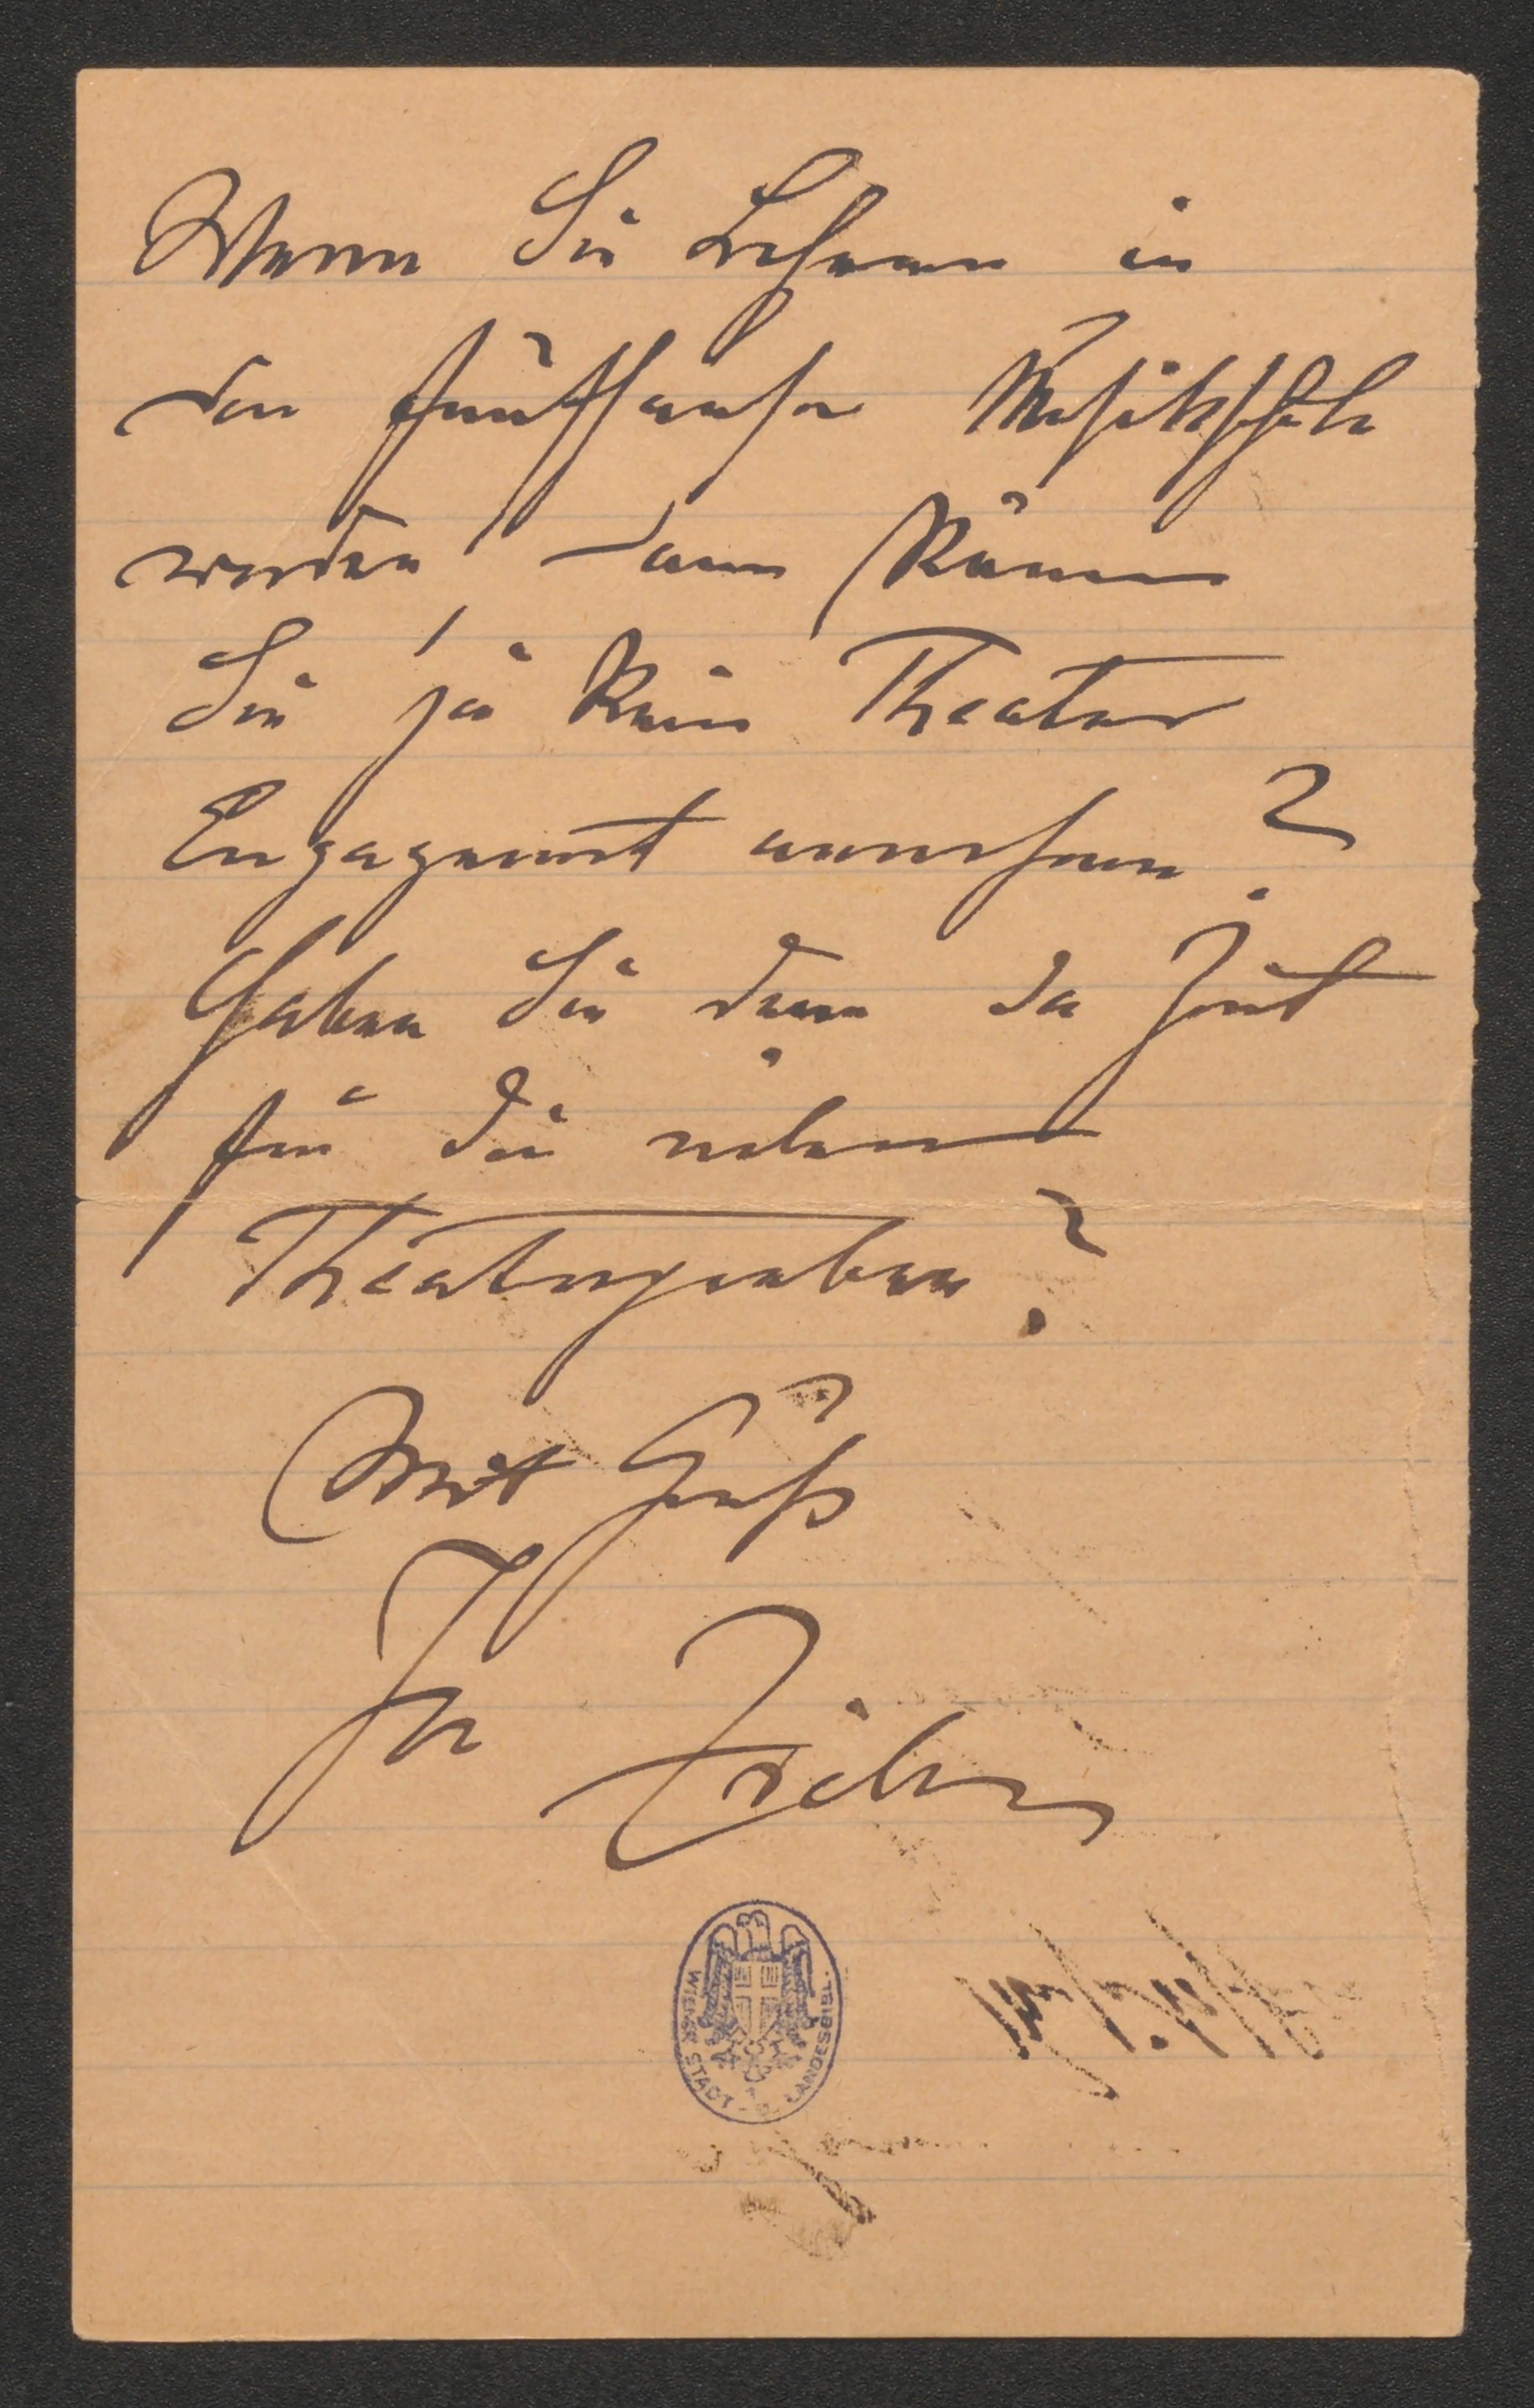 Wenn Sie Lehrer in
der Fünfhauser Musikschule
werden, dann können
Sie ja kein Theater
Engagement annehmen?
Haben Sie denn da Zeit
für die
Theaterproben?
Mit Gruß
Ihr Ziehrer
WIENER STADT - U. LANDESBIBL.